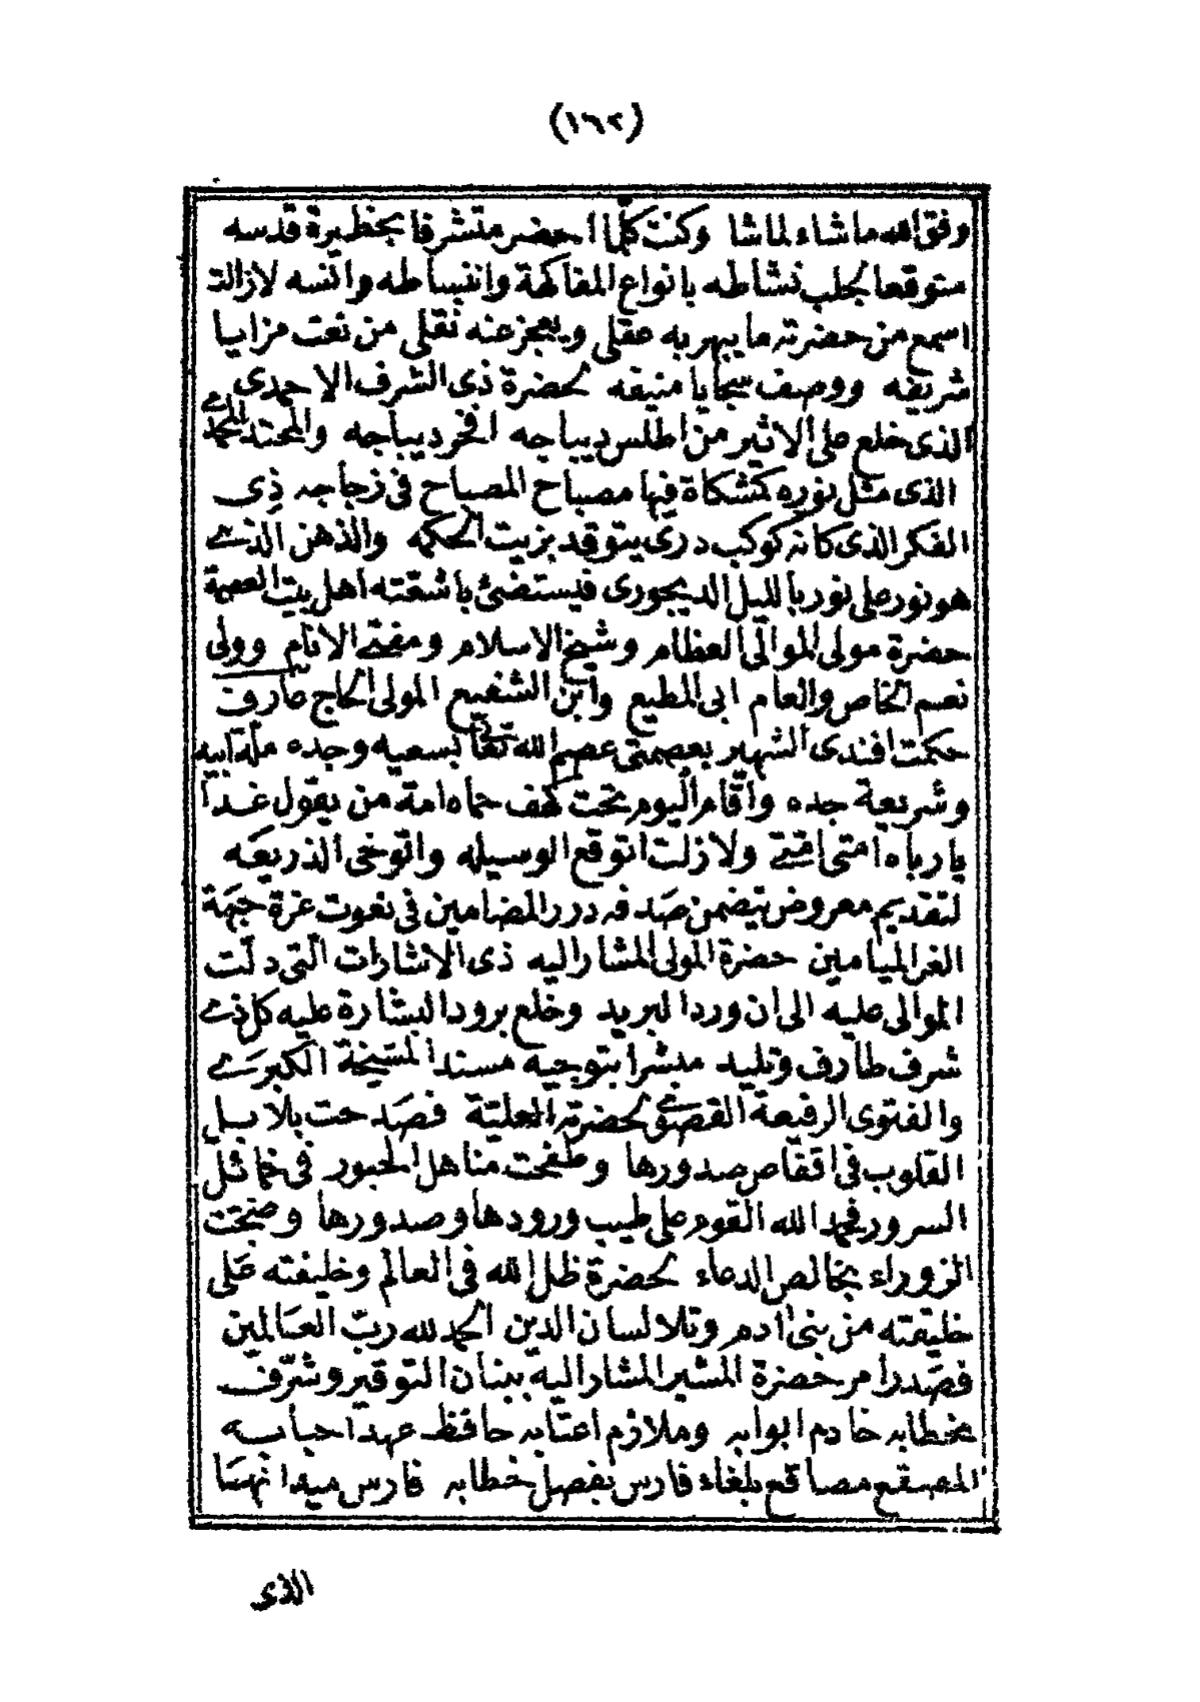 (١٦٢)
وفق الله ماشاء لماشا وكنت كلما احضر متشرفا بحظيرة قدسه
متوقعا لجلب نشاطه بانواع المفاكهة وانبساطه وانسه لازالت
اسمع من حضرته ما يبهر به عقلى ويعجز عنه نقلى من نعت مزايا
شريفه ووصف سجايا منيفه لحضرة ذى الشرف الاحمدى
الذى خلع على الاثير من اطلس ديباجه افخر ديباجه والمحتد المحمدى
الذى مثل نوره كمشكاة فيها مصباح المصباح فى زجاجه ذى
الفكر الذى كانه كوكب درى يتوقد بزيت الحكمه والذهن الذى
هو نور على نور بالليل الديجورى فيستضئ باشعته اهل بيت العصمة
حضرة مولى الموالى العظام وشيخ الاسلام ومفتى الانام وولى
نعم الخاص والعام ابى المطيع وابن الشفيع المولى الحاج عارف
حكمت افندى الشهير بعصمتى عصم الله تعالى بسعيه وجده ملة ابيه
وشريعة جده واقام اليوم تحت كهف حماه امة من يقول غدا
يارباه امتى امتى ولازلت اتوقع الوسيله واتوخى الذريعه
لتقديم معروض يتضمن صدفه درر المضامين فى نعوت غرة جبهة
الغر الميامين حضرة المولى المشار اليه ذى الاشارات التى دلت
الموالى عليه الى ان ورد البريد وخلع برود البشارة عليه كل ذى
شرف طارف وتليد مبشرا بتوجيه مسند المشيخة الكبرى
والفتوى الرفيعة القصوى لحضرته العلية فصدحت بلابل
القلوب فى اقفاص صدورها وطفحت مناهل الحبور فى خمائل
السرور فحمد الله القوم على طيب ورودها وصدورها وضجت
الزوراء بخالص الدعاء لحضرة ظل الله فى العالم وخليفته على
خليقته من بنى ادم وتلا لسان الدين الحمد لله رب العالمين
فصدر امر حضرة المشير المشار اليه ببنان التوقير وشرف
بخطابه خادم ابوابه وملازم اعتابه حافظ عهد احبابه
المصقع مصاقع بلغاء فارس بفصل خطابه فارس ميدانها
الذى